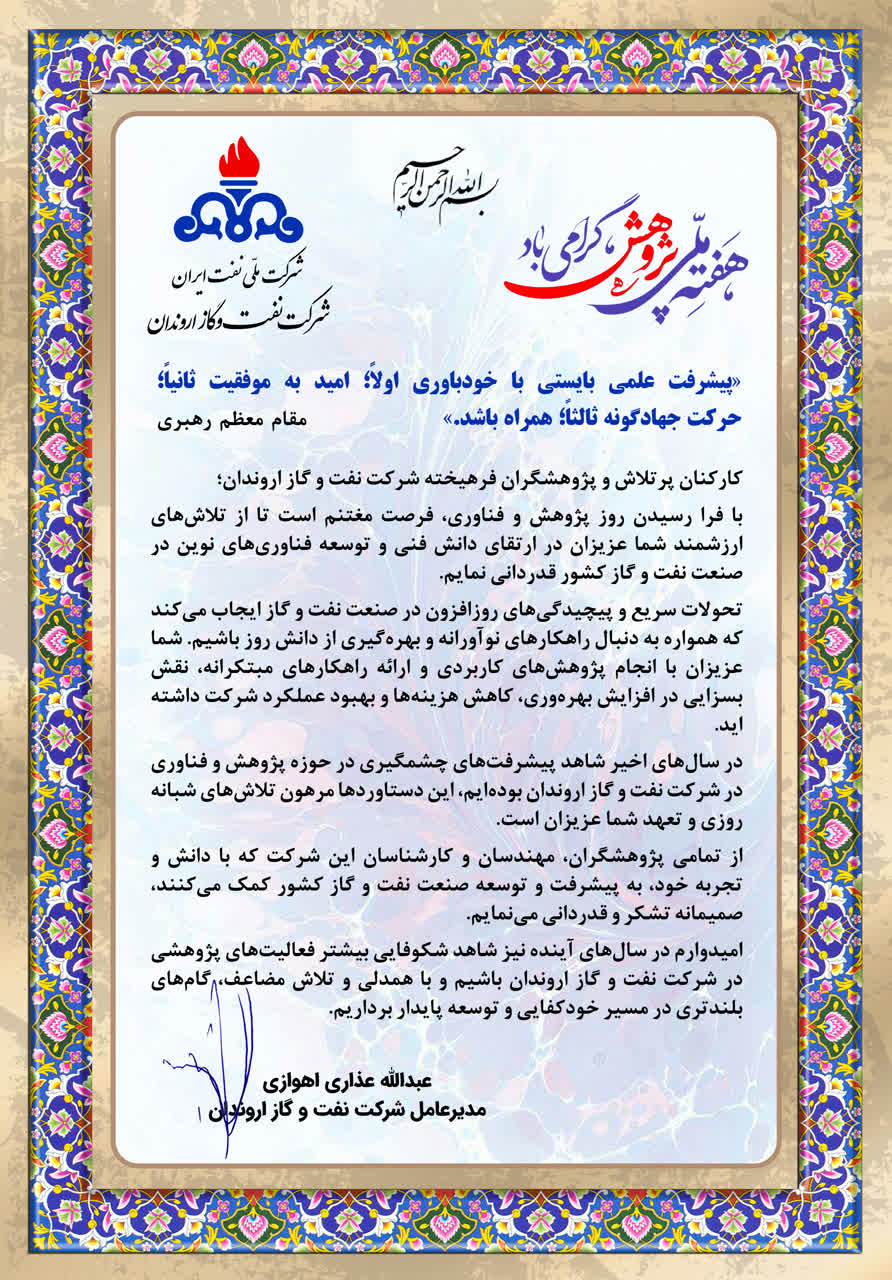 بسم الله الرحمن الرحیم
شرکت ملّی نفت ایران
شرکت نفت و گاز اروندان
هَفتِه ملّی پژوهش گرامی باد
«پیشرفت علمی بایستی با خودباوری اولاً؛ امید به موفقیت ثانیاً؛
حرکت جهادگونه ثالثاً؛ همراه باشد.» مقام معظم رهبری
کارکنان پرتلاش و پژوهشگران فرهیخته شرکت نفت و گاز اروندان؛
با فرا رسیدن روز پژوهش و فناوری، فرصت مغتنم است تا از تلاش‌های
ارزشمند شما عزیزان در ارتقای دانش فنی و توسعه فناوری‌های نوین در
صنعت نفت و گاز کشور قدردانی نمایم.
تحولات سریع و پیچیدگی‌های روزافزون در صنعت نفت و گاز ایجاب می‌کند
که همواره به دنبال راهکارهای نوآورانه و بهره‌گیری از دانش روز باشیم. شما
عزیزان با انجام پژوهش‌های کاربردی و ارائه راهکارهای مبتکرانه، نقش
بسزایی در افزایش بهره‌وری، کاهش هزینه‌ها و بهبود عملکرد شرکت داشته
اید.
در سال‌های اخیر شاهد پیشرفت‌های چشمگیری در حوزه پژوهش و فناوری
در شرکت نفت و گاز اروندان بوده‌ایم، این دستاوردها مرهون تلاش‌های شبانه
روزی و تعهد شما عزیزان است.
از تمامی پژوهشگران، مهندسان و کارشناسان این شرکت که با دانش و
تجربه خود، به پیشرفت و توسعه صنعت نفت و گاز کشور کمک می‌کنند،
صمیمانه تشکر و قدردانی می‌نمایم.
امیدوارم در سال‌های آینده نیز شاهد شکوفایی بیشتر فعالیت‌های پژوهشی
در شرکت نفت و گاز اروندان باشیم و با همدلی و تلاش مضاعف، گام‌های
بلندتری در مسیر خودکفایی و توسعه پایدار برداریم.
عبدالله عذاری اهوازی
مدیرعامل شرکت نفت و گاز اروندان